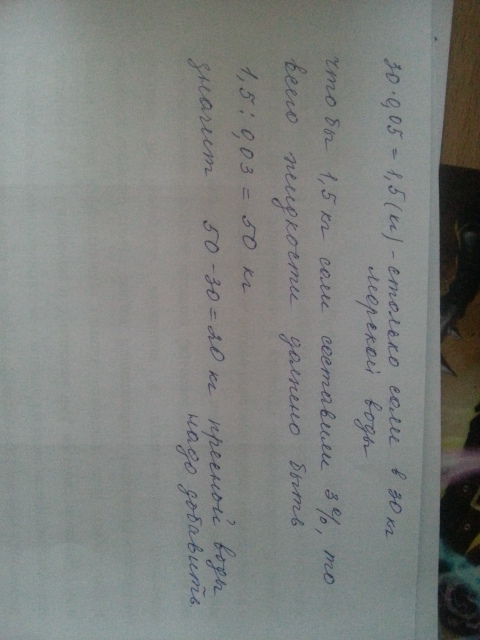 30·0,05 = 1,5 (кг) - столько соли в 30 кг
морской воды
чтобы 1,5 кг соли составили 3%, то
всего жидкости должно быть
1,5 : 0,03 = 50 кг
значит 50 - 30 = 20 кг пресной воды
надо добавить.